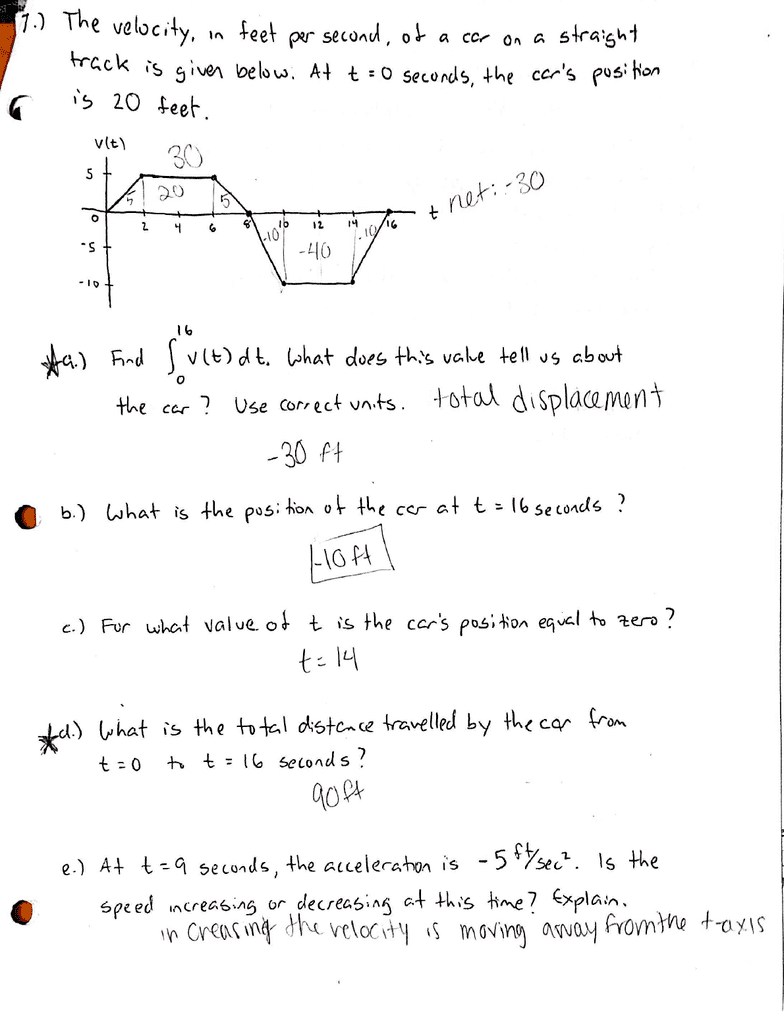 7.) The velocity, in feet per second, of a car on a straight
track is given below. At t = 0 seconds, the car's position
is 20 feet.
v(t)
30
5
5 20 5
net: -30
0 2 4 6 8 10 12 14 16 t
-10 -40 -10
-5
-10
a.) Find ∫₀¹⁶ v(t) dt. What does this value tell us about
the car? Use correct units. total displacement
-30 ft
b.) What is the position of the car at t = 16 seconds?
-10 ft
c.) For what value of t is the car's position equal to zero?
t = 14
d.) What is the total distance travelled by the car from
t = 0 to t = 16 seconds?
90 ft
e.) At t = 9 seconds, the acceleration is -5 ft/sec². Is the
speed increasing or decreasing at this time? Explain.
increasing the velocity is moving away from the t-axis